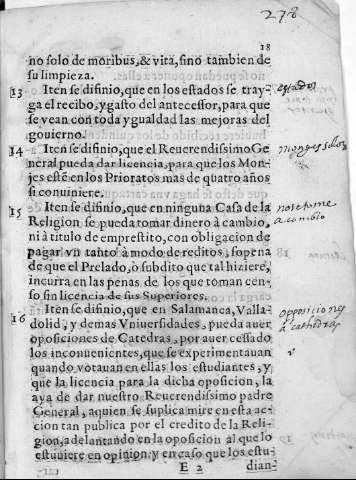 278
18
no solo de moribus, & vita, sino tambien de
su limpieza.
13 Iten se difinio, que en los estados se tray-
ga el recibo, y gasto del antecessor, para que
se vean con toda ygualdad las mejoras del
gouierno.
estados
14 Iten se difinio, que el Reuerendissimo Ge
neral pueda dar licencia, para que los Mon-
jes estè en los Prioratos mas de quatro años
si conuiniere.
Monges
15 Iten se difinio, que en ninguna Casa de la
Religion se pueda tomar dinero à cambio,
ni à titulo de emprestito, con obligacion de
pagar vn tanto à modo de reditos, sopena
de que el Prelado, ò subdito que tal hiziere,
incurra en las penas de los que toman cen-
so sin licencia de sus Superiores.
no se tome
a cambio
16 Iten se difinio, que en Salamanca, Valla-
dolid, y demas Vniuersidades, pueda auer
oposiciones de Catedras, por auer cessado
los inconuenientes, que se experimentauan
quando votauan en ellas los estudiantes, y
que la licencia para la dicha oposicion, la
aya de dar nuestro Reuerendissimo padre
General, aquien se suplica mire en esta ac-
cion tan publica por el credito de la Reli-
gion, adelantando en la oposicion al que lo
estuuiere en opinion, y en caso que los estu-
oposiciones
a cathedras
E 2 dian-